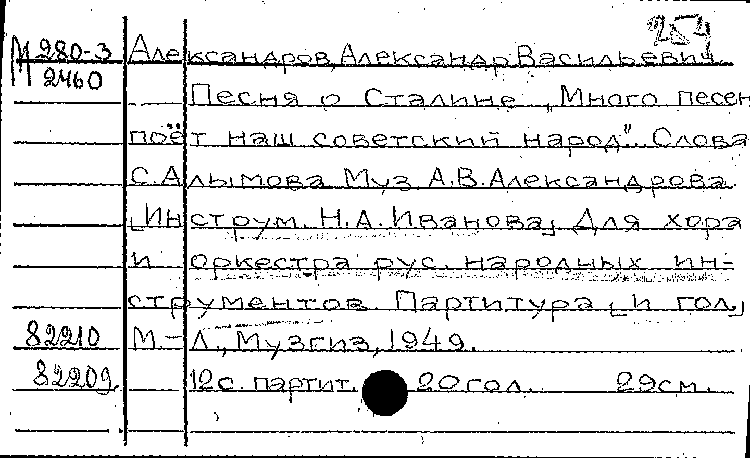 254
М 280-3 Александров, Александр Васильевич.
2460 Песня о Сталине „Много песен
поёт наш советский народ". Слова
С. Алымова Муз А.В. Александрова.
[Инструм. Н.А. Иванова] Для хора
и оркестра рус. народных ин-
струментов. Партитура [и гол.]
82210 М.-Л., Музгиз, 1949.
82209. 12 с. партит. 20 гол. 29 см.